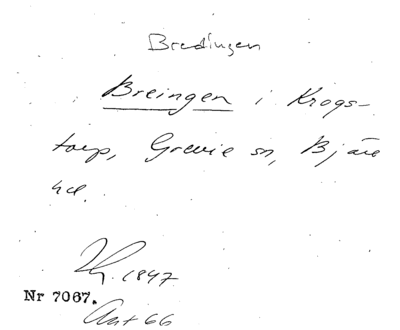 Bredingen
Breingen i Krogs-
torp, Grevie sn, Bjäre
hd.
1847
Nr 7067.
Ant 66